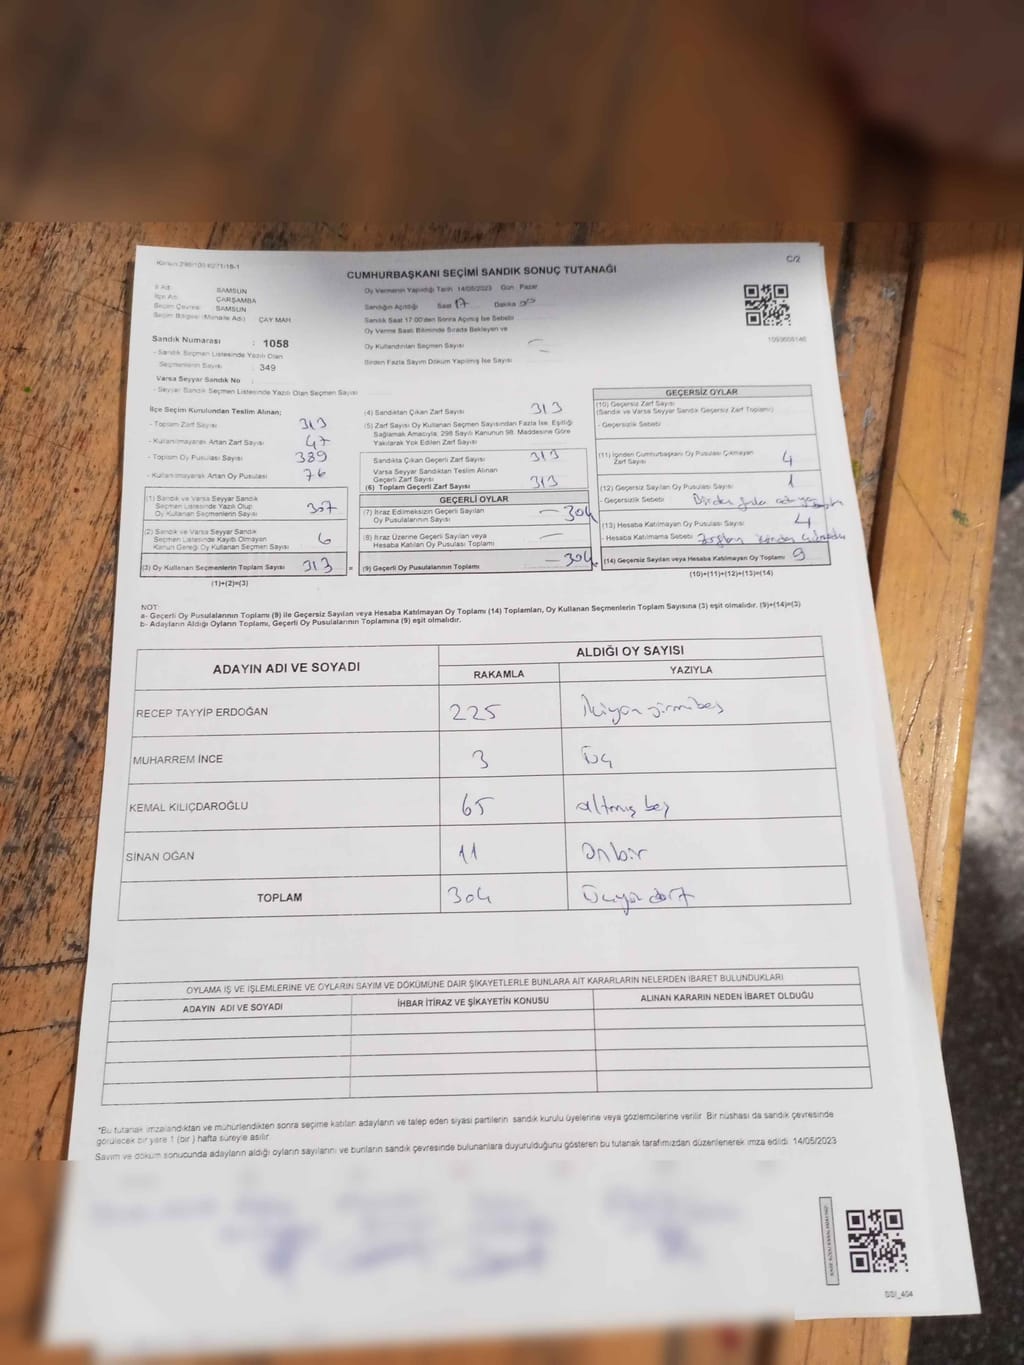 Kanun:298/105 6271/18-1
C/2
CUMHURBAŞKANI SEÇİMİ SANDIK SONUÇ TUTANAĞI
İl Adı : SAMSUN
İlçe Adı : ÇARŞAMBA
Seçim Çevresi : SAMSUN
Seçim Bölgesi (Mahalle Adı) : ÇAY MAH.
Oy Vermenin Yapıldığı Tarih 14/05/2023 Gün : Pazar
Sandığın Açıldığı Saat 17 Dakika
Sandık Saat 17.00'den Sonra Açılmış İse Sebebi
Oy Verme Saati Bitiminde Sırada Bekleyen ve
Oy Kullandırılan Seçmen Sayısı
Birden Fazla Sayım Döküm Yapılmış İse Sayısı
Sandık Numarası : 1058
- Sandık Seçmen Listesinde Yazılı Olan
Seçmenlerin Sayısı : 349
Varsa Seyyar Sandık No :
- Seyyar Sandık Seçmen Listesinde Yazılı Olan Seçmen Sayısı
İlçe Seçim Kurulundan Teslim Alınan;
- Toplam Zarf Sayısı
- Kullanılmayarak Artan Zarf Sayısı 47
- Toplam Oy Pusulası Sayısı 389
- Kullanılmayarak Artan Oy Pusulası 76
(1) Sandık ve Varsa Seyyar Sandık
Seçmen Listesinde Yazılı Olup
Oy Kullanan Seçmenlerin Sayısı 307
(2) Sandık ve Varsa Seyyar Sandık
Seçmen Listesinde Kayıtlı Olmayan
Kanun Gereği Oy Kullanan Seçmen Sayısı 6
(3) Oy Kullanan Seçmenlerin Toplam Sayısı 313 =
(1)+(2)=(3)
(4) Sandıktan Çıkan Zarf Sayısı 313
(5) Zarf Sayısı Oy Kullanan Seçmen Sayısından Fazla İse, Eşitliği
Sağlamak Amacıyla; 298 Sayılı Kanunun 98. Maddesine Göre
Yakılarak Yok Edilen Zarf Sayısı
Sandıkta Çıkan Geçerli Zarf Sayısı 313
Varsa Seyyar Sandıktan Teslim Alınan
Geçerli Zarf Sayısı
(6) Toplam Geçerli Zarf Sayısı 313
GEÇERLİ OYLAR
(7) İtiraz Edilmeksizin Geçerli Sayılan
Oy Pusulalarının Sayısı — 304
(8) İtiraz Üzerine Geçerli Sayılan veya
Hesaba Katılan Oy Pusulası Toplamı —
(9) Geçerli Oy Pusulalarının Toplamı — 304
GEÇERSİZ OYLAR
(10) Geçersiz Zarf Sayısı
(Sandık ve Varsa Seyyar Sandık Geçersiz Zarf Toplamı)
- Geçersizlik Sebebi
(11) İçinden Cumhurbaşkanı Oy Pusulası Çıkmayan
Zarf Sayısı 4
(12) Geçersiz Sayılan Oy Pusulası Sayısı 1
- Geçersizlik Sebebi Birden fazla
(13) Hesaba Katılmayan Oy Pusulası Sayısı 4
- Hesaba Katılmama Sebebi
(14) Geçersiz Sayılan veya Hesaba Katılmayan Oy Toplamı 9
(10)+(11)+(12)+(13)=(14)
NOT:
a- Geçerli Oy Pusulalarının Toplamı (9) ile Geçersiz Sayılan veya Hesaba Katılmayan Oy Toplamı (14) Toplamları, Oy Kullanan Seçmenlerin Toplam Sayısına (3) eşit olmalıdır. (9)+(14)=(3)
b- Adayların Aldığı Oyların Toplamı, Geçerli Oy Pusulalarının Toplamına (9) eşit olmalıdır.
ADAYIN ADI VE SOYADI
ALDIĞI OY SAYISI
RAKAMLA YAZIYLA
RECEP TAYYİP ERDOĞAN 225 ikiyüzyirmibeş
MUHARREM İNCE 3 Üç
KEMAL KILIÇDAROĞLU 65 altmış beş
SİNAN OĞAN 11 Onbir
TOPLAM 304 Üçyüz dört
OYLAMA İŞ VE İŞLEMLERİNE VE OYLARIN SAYIM VE DÖKÜMÜNE DAİR ŞİKAYETLERLE BUNLARA AİT KARARLARIN NELERDEN İBARET BULUNDUKLARI
ADAYIN ADI VE SOYADI İHBAR İTİRAZ VE ŞİKAYETİN KONUSU ALINAN KARARIN NEDEN İBARET OLDUĞU
*Bu tutanak imzalandıktan ve mühürlendikten sonra seçime katılan adayların ve talep eden siyasi partilerin sandık kurulu üyelerine veya gözlemcilerine verilir. Bir nüshası da sandık çevresinde
görülecek bir yere 1 (bir ) hafta süreyle asılır.
Sayım ve döküm sonucunda adayların aldığı oyların sayılarını ve bunların sandık çevresinde bulunanlara duyurulduğunu gösteren bu tutanak tarafımızdan düzenlenerek imza edildi. 14/05/2023
SSI_404